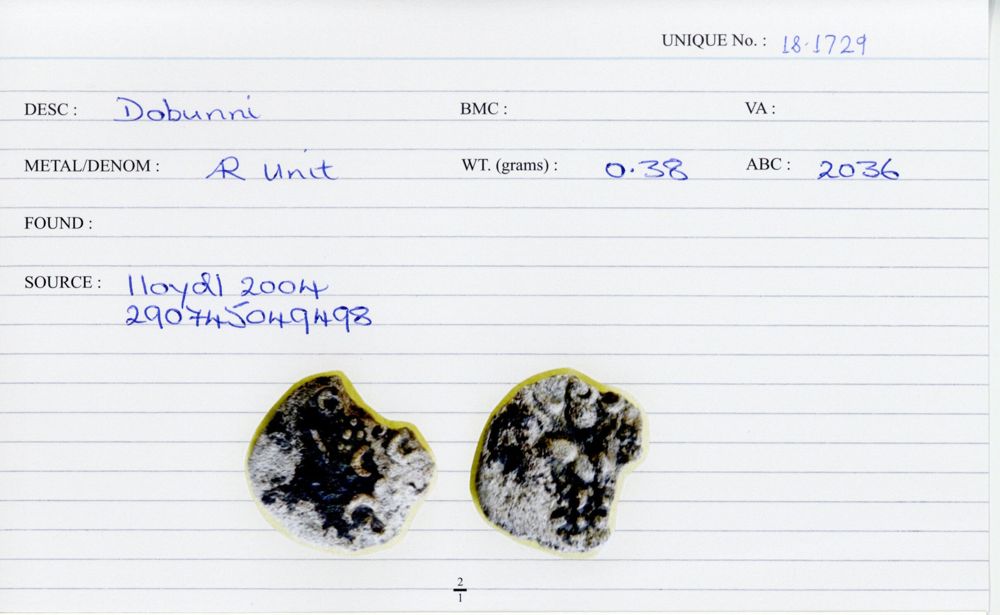 UNIQUE No. : 18.1729
DESC : Dobunni BMC : VA :
METAL/DENOM : AR Unit WT. (grams) : 0.38 ABC : 2036
FOUND :
SOURCE : lloydl 2004
290745049498
2
1